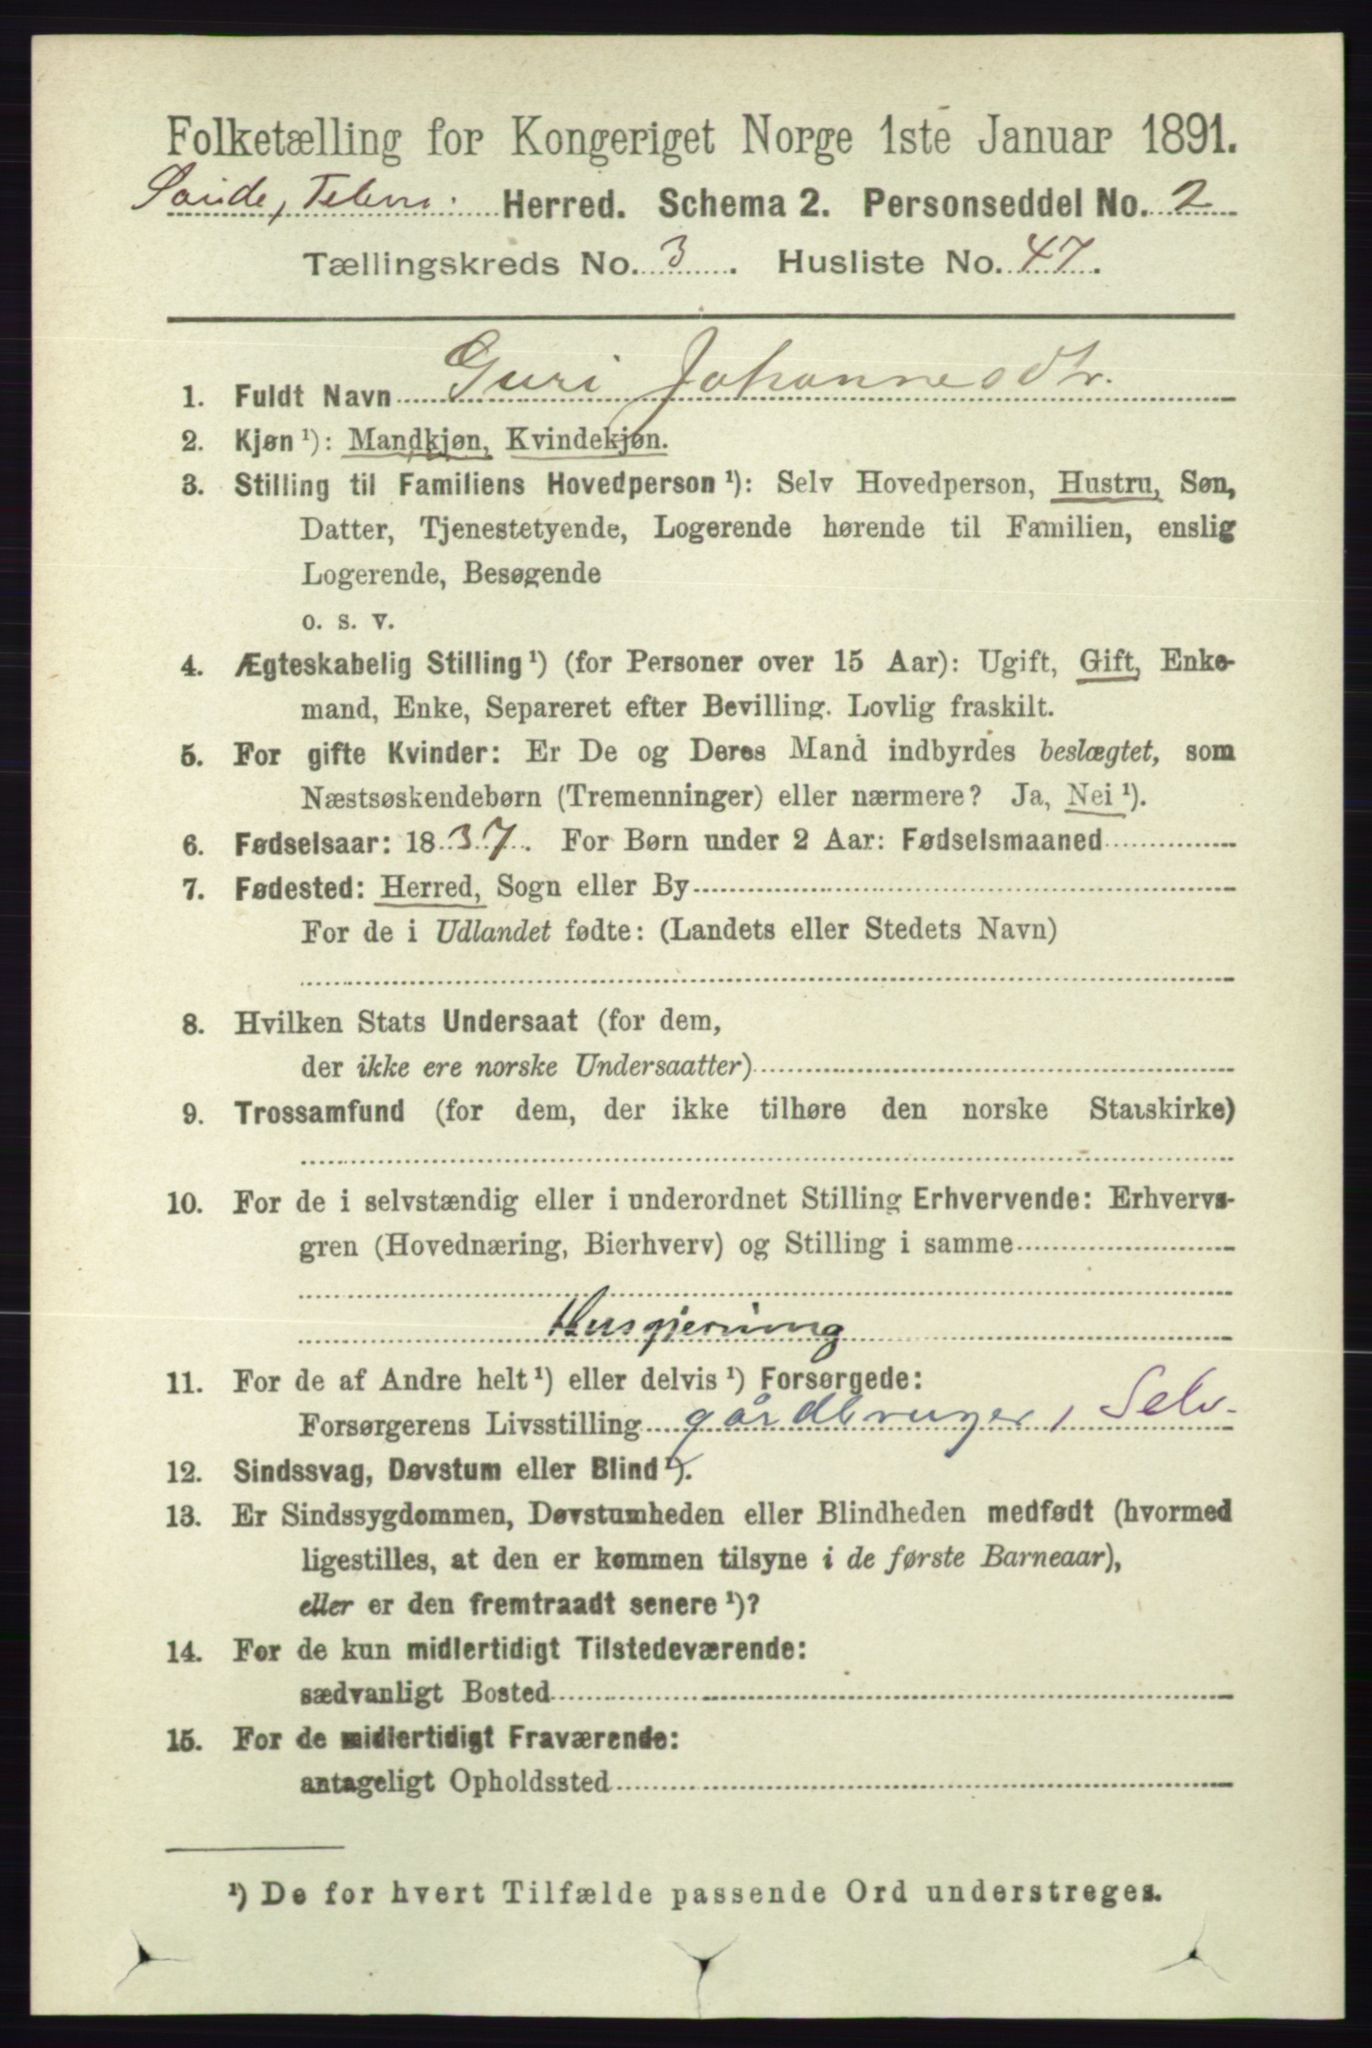 Folketælling for Kongeriget Norge 1ste Januar 1891.
Saude, Telem. Herred. Schema 2. Personseddel No. 2
Tællingskreds No. 3. Husliste No. 47.
1. Fuldt Navn Guri Johannesdtr.
2. Kjøn ¹): Mandkjøn, Kvindekjøn.
3. Stilling til Familiens Hovedperson ¹): Selv Hovedperson, Hustru, Søn,
Datter, Tjenestetyende, Logerende hørende til Familien, enslig
Logerende, Besøgende
o. s. v.
4. Ægteskabelig Stilling ¹) (for Personer over 15 Aar): Ugift, Gift, Enke-
mand, Enke, Separeret efter Bevilling. Lovlig fraskilt.
5. For gifte Kvinder: Er De og Deres Mand indbyrdes beslægtet, som
Næstsøskendebørn (Tremenninger) eller nærmere? Ja, Nei ¹).
6. Fødselsaar: 1837. For Børn under 2 Aar: Fødselsmaaned
7. Fødested: Herred, Sogn eller By
For de i Udlandet fødte: (Landets eller Stedets Navn)
8. Hvilken Stats Undersaat (for dem,
der ikke ere norske Undersaatter)
9. Trossamfund (for dem, der ikke tilhøre den norske Statskirke)
10. For de i selvstændig eller i underordnet Stilling Erhvervende: Erhvervs-
gren (Hovednæring, Bierhverv) og Stilling i samme
Husgjerning
11. For de af Andre helt ¹) eller delvis ¹) Forsørgede:
Forsørgerens Livsstilling gårdbruger, Selv.
12. Sindssvag, Døvstum eller Blind ¹).
13. Er Sindssygdommen, Døvstumheden eller Blindheden medfødt (hvormed
ligestilles, at den er kommen tilsyne i de første Barneaar),
eller er den fremtraadt senere ¹)?
14. For de kun midlertidigt Tilstedeværende:
sædvanligt Bosted
15. For de midlertidigt Fraværende:
antageligt Opholdssted
¹) De for hvert Tilfælde passende Ord understreges.